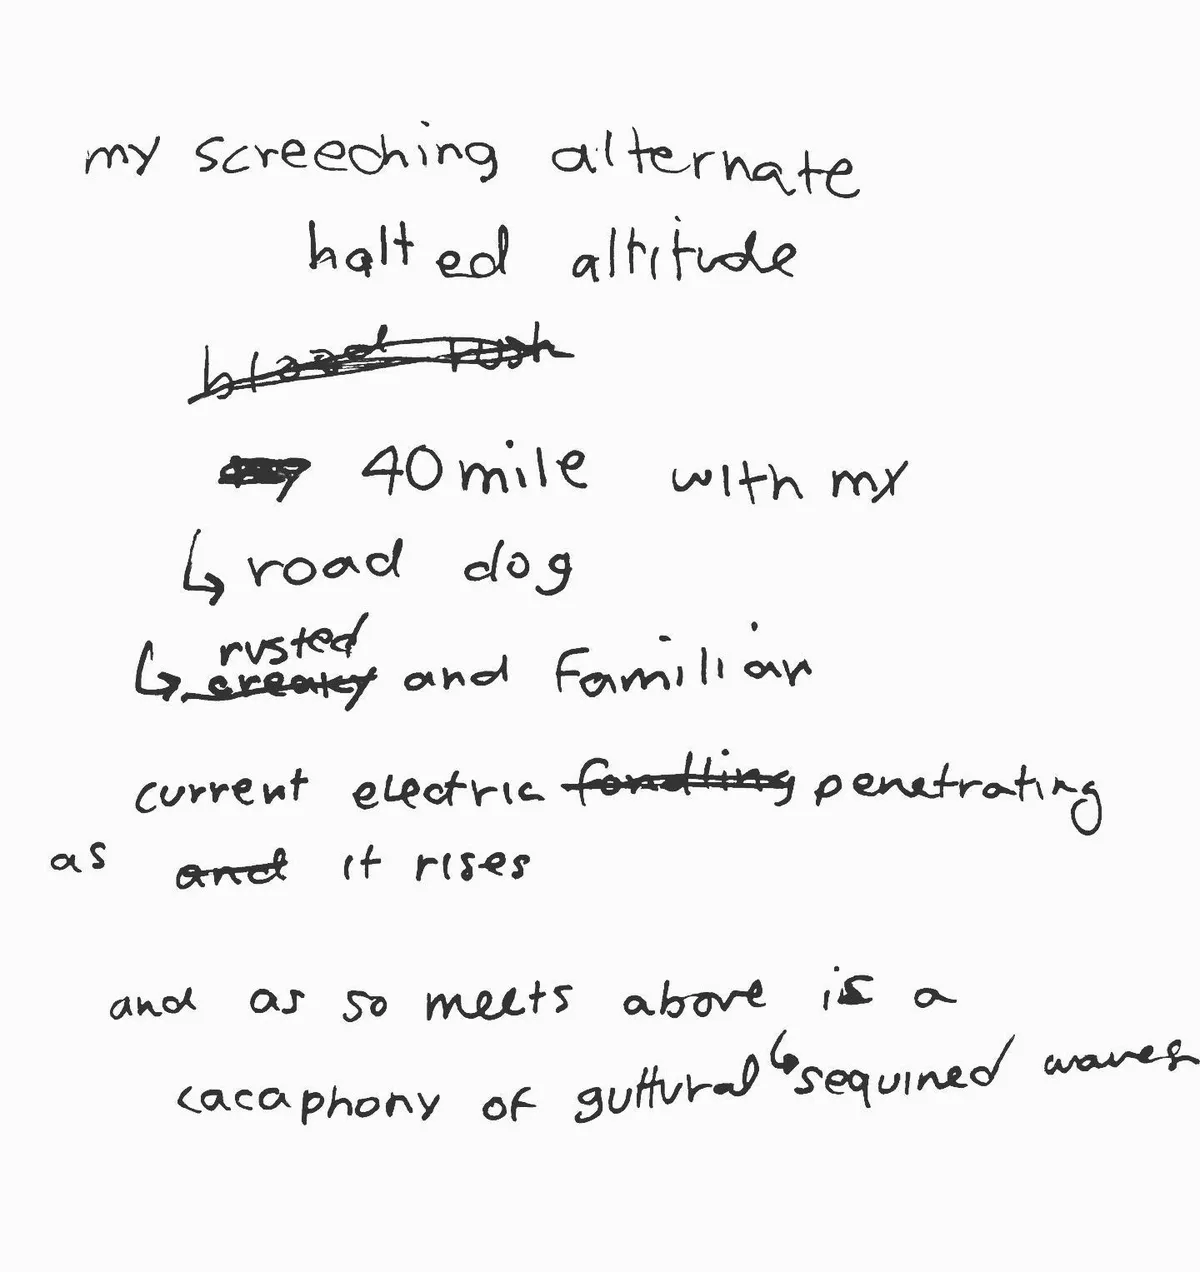 my screeching alternate
halted altitude
blood rush
40 mile with my
↳ road dog
rusted
↳ creaky and Familiar
current electric fondling penetrating
as and it rises
and as so meets above is a
cacaphony of guttural ↳ sequined waves